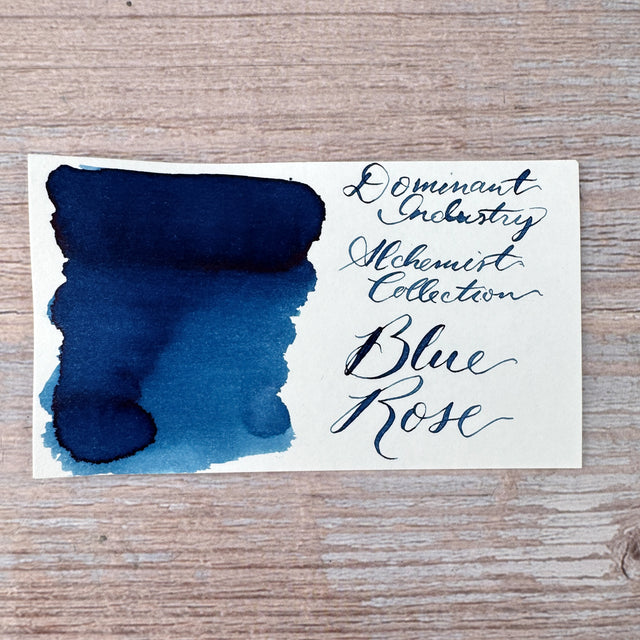 Dominant
Industry
Alchemist
Collection
Blue
Rose